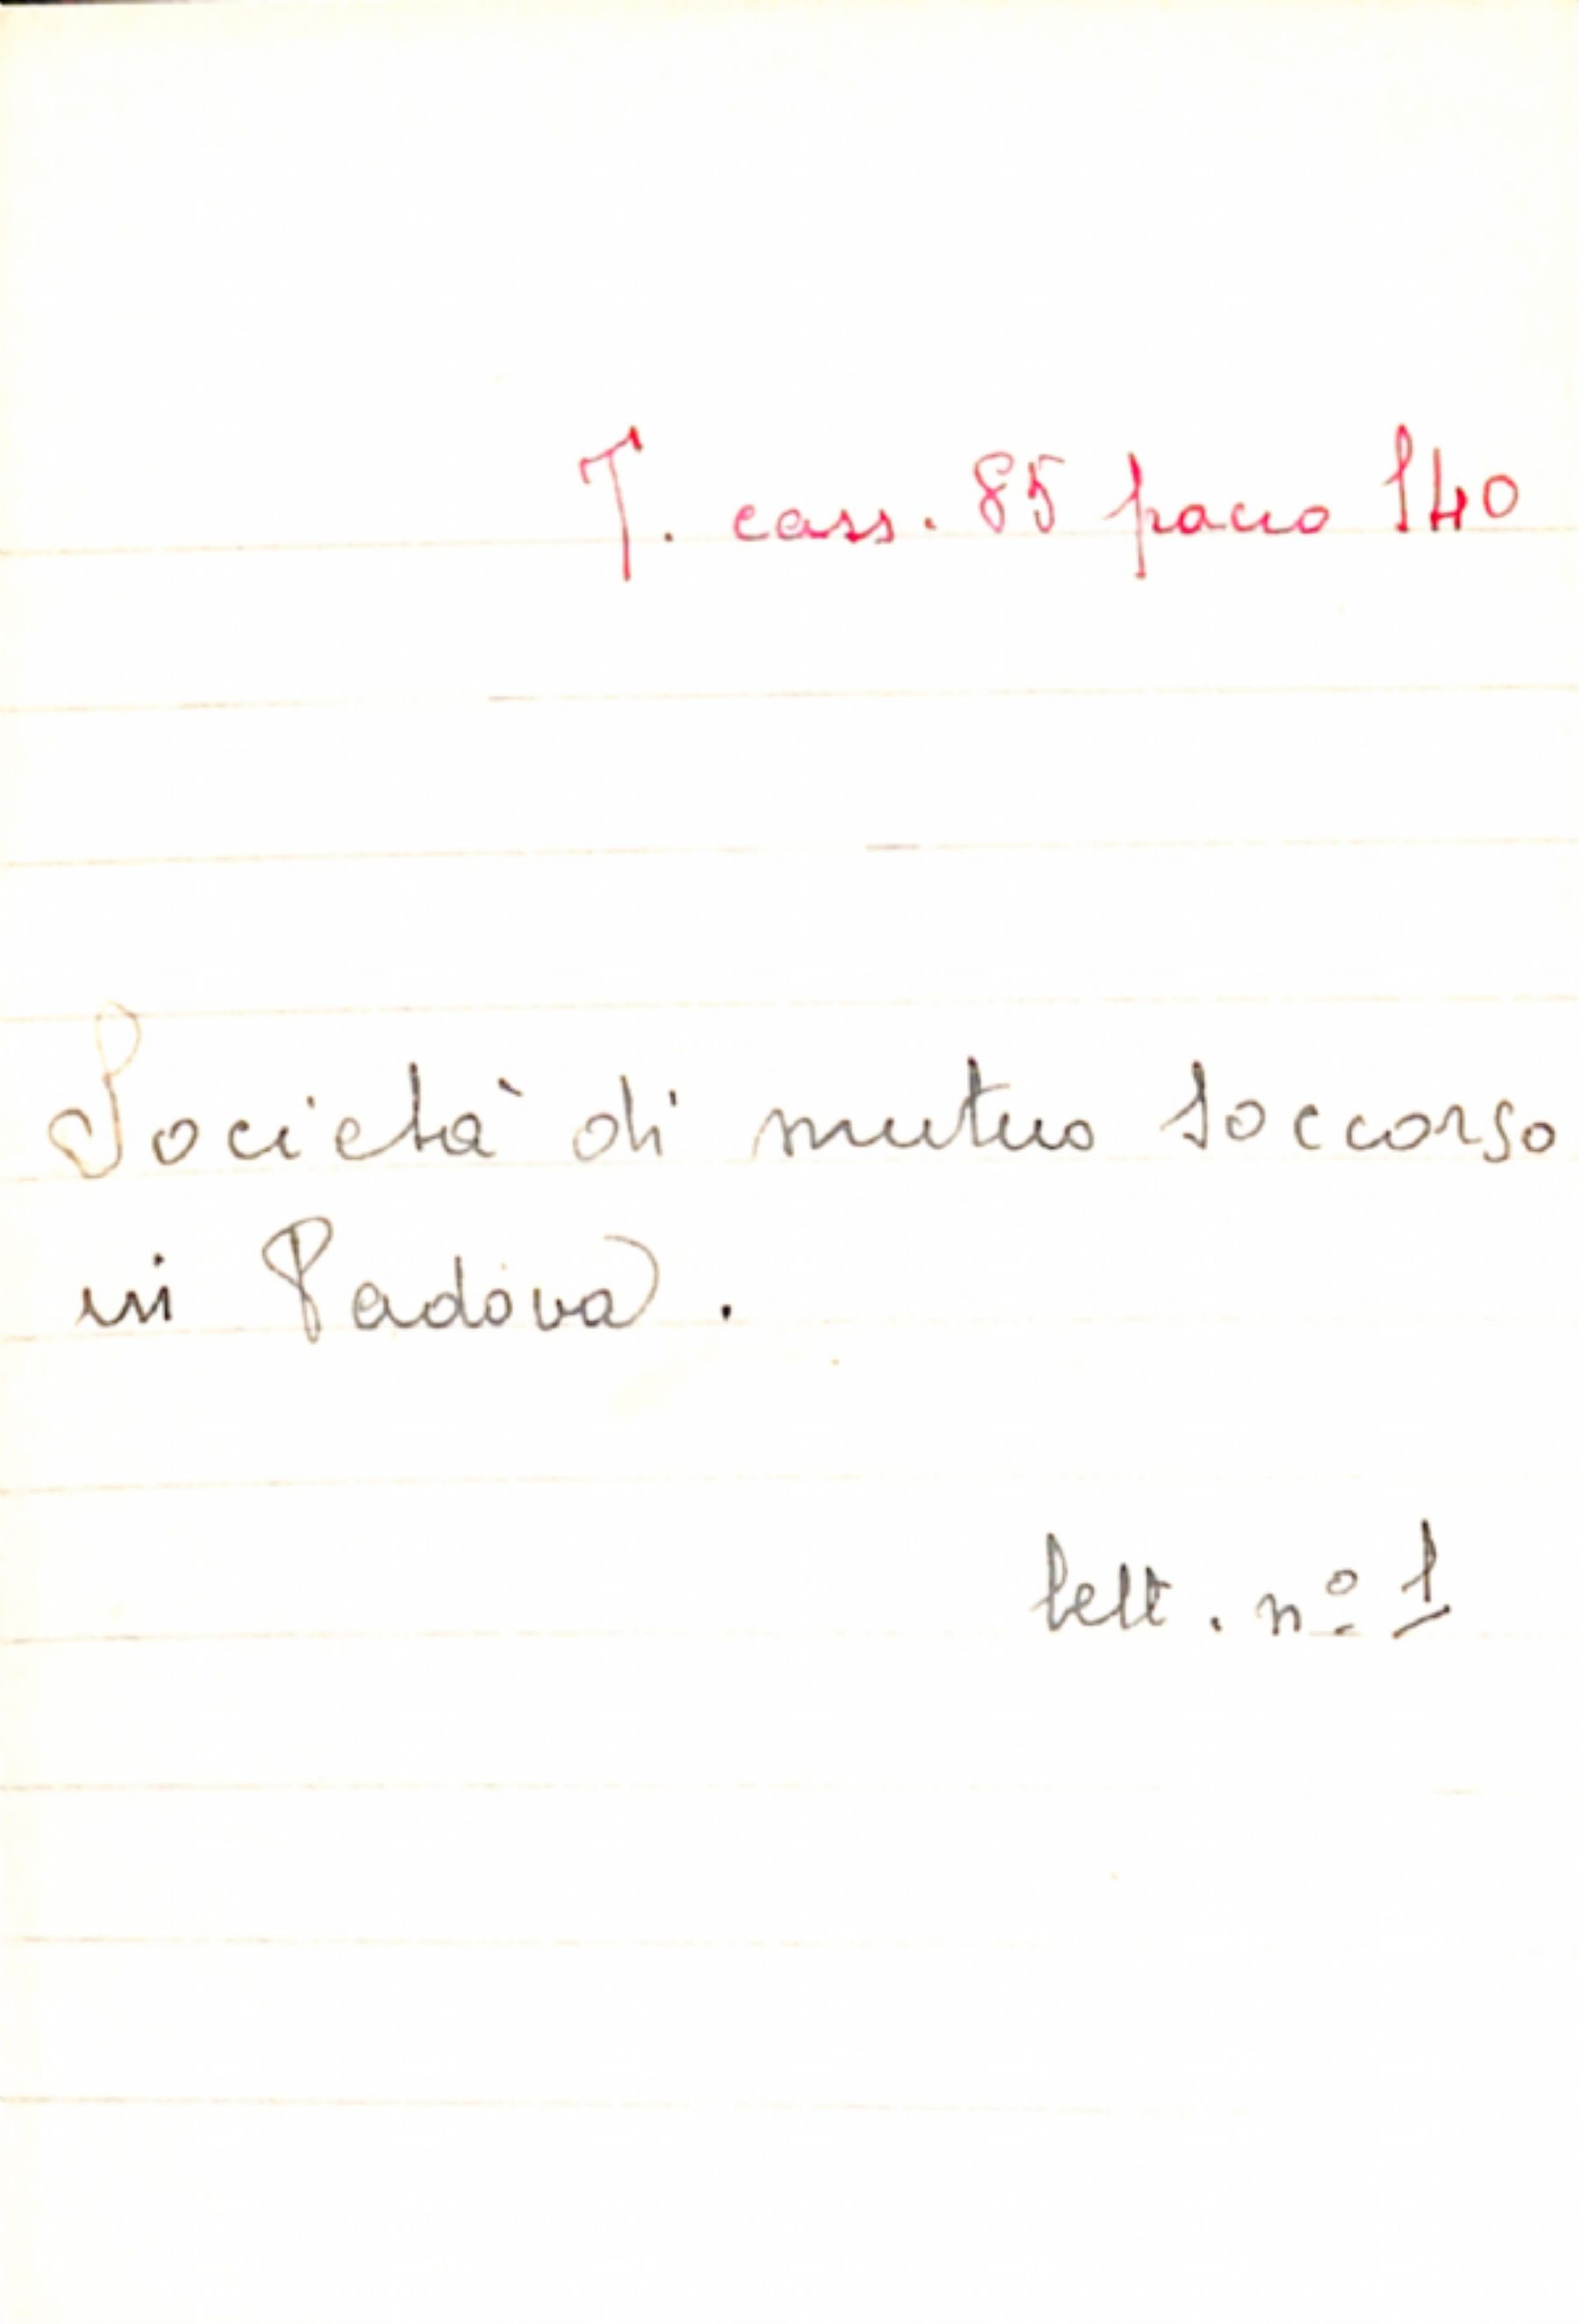 T. cass. 85 pacco 140
Società di mutuo soccorso
in Padova.
lett. nº 1